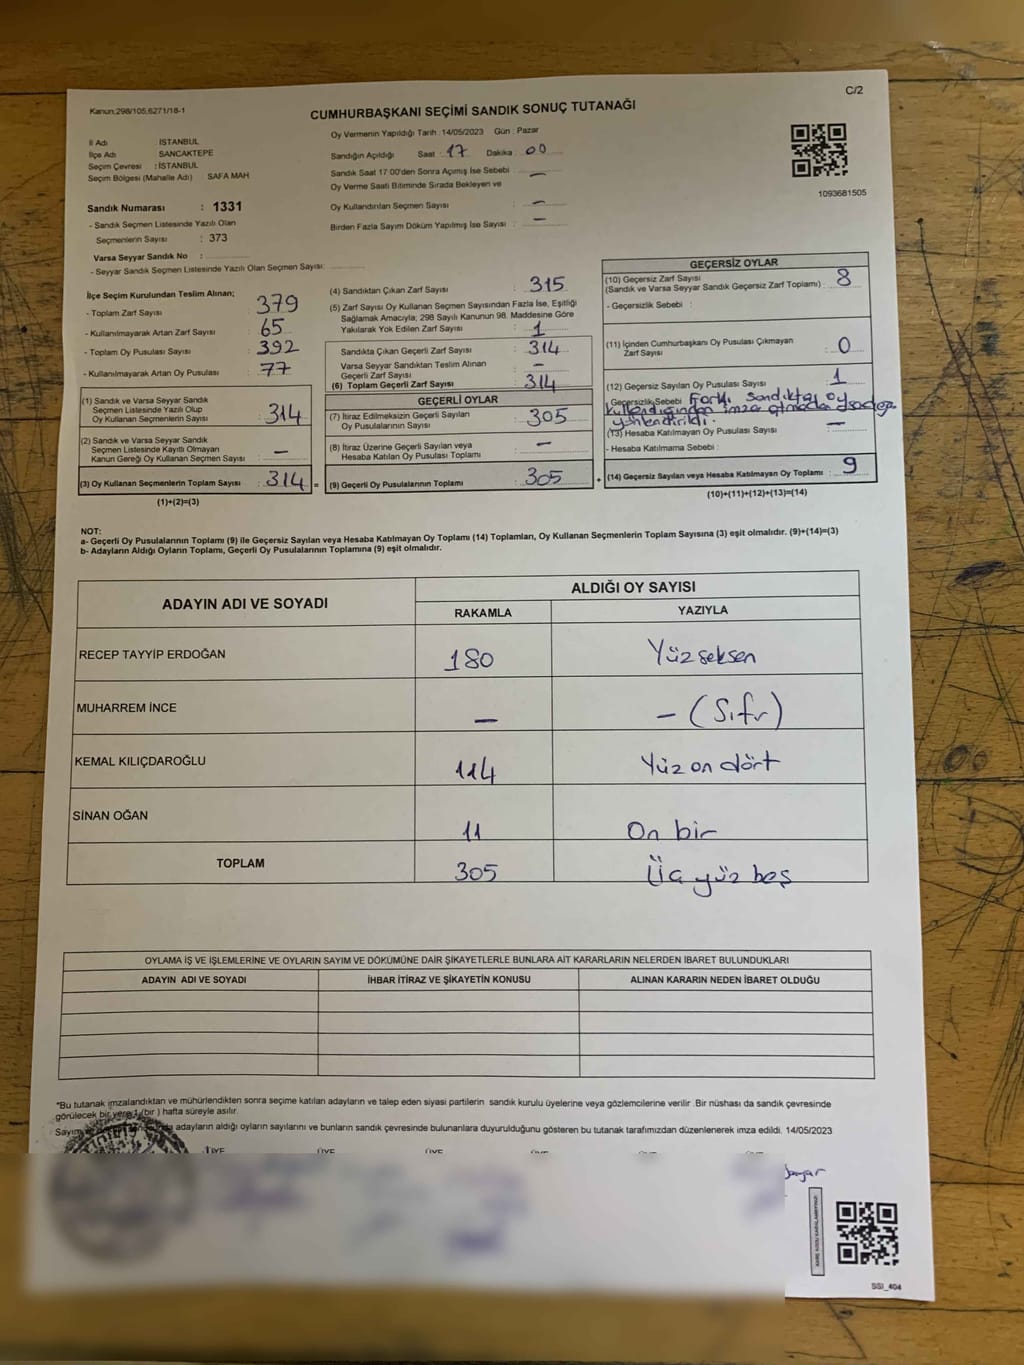 C/2
Kanun:298/105;6271/18-1
CUMHURBAŞKANI SEÇİMİ SANDIK SONUÇ TUTANAĞI
İl Adı İSTANBUL
İlçe Adı SANCAKTEPE
Seçim Çevresi : İSTANBUL
Seçim Bölgesi (Mahalle Adı) SAFA MAH
Sandık Numarası : 1331
- Sandık Seçmen Listesinde Yazılı Olan
Seçmenlerin Sayısı : 373
Varsa Seyyar Sandık No :
- Seyyar Sandık Seçmen Listesinde Yazılı Olan Seçmen Sayısı:
Oy Vermenin Yapıldığı Tarih :14/05/2023 Gün : Pazar
Sandığın Açıldığı Saat : 17 Dakika : 00
Sandık Saat 17:00'den Sonra Açımış İse Sebebi : —
Oy Verme Saati Bitiminde Sırada Bekleyen ve
Oy Kullandırılan Seçmen Sayısı : —
Birden Fazla Sayım Döküm Yapılmış İse Sayısı : —
1093681505
İlçe Seçim Kurulundan Teslim Alınan;
- Toplam Zarf Sayısı : 379
- Kullanılmayarak Artan Zarf Sayısı : 65
- Toplam Oy Pusulası Sayısı : 392
- Kullanılmayarak Artan Oy Pusulası : 77
(1) Sandık ve Varsa Seyyar Sandık
Seçmen Listesinde Yazılı Olup
Oy Kullanan Seçmenlerin Sayısı : 314
(2) Sandık ve Varsa Seyyar Sandık
Seçmen Listesinde Kayıtlı Olmayan
Kanun Gereği Oy Kullanan Seçmen Sayısı : —
(3) Oy Kullanan Seçmenlerin Toplam Sayısı : 314 =
(1)+(2)=(3)
(4) Sandıktan Çıkan Zarf Sayısı : 315
(5) Zarf Sayısı Oy Kullanan Seçmen Sayısından Fazla İse, Eşitliği
Sağlamak Amacıyla; 298 Sayılı Kanunun 98. Maddesine Göre
Yakılarak Yok Edilen Zarf Sayısı : 1
Sandıkta Çıkan Geçerli Zarf Sayısı : 314
Varsa Seyyar Sandıktan Teslim Alınan
Geçerli Zarf Sayısı : —
(6) Toplam Geçerli Zarf Sayısı : 314
GEÇERLİ OYLAR
(7) İtiraz Edilmeksizin Geçerli Sayılan
Oy Pusulalarının Sayısı : 305
(8) İtiraz Üzerine Geçerli Sayılan veya
Hesaba Katılan Oy Pusulası Toplamı : —
(9) Geçerli Oy Pusulalarının Toplamı : 305 +
GEÇERSİZ OYLAR
(10) Geçersiz Zarf Sayısı
(Sandık ve Varsa Seyyar Sandık Geçersiz Zarf Toplamı) : 8
- Geçersizlik Sebebi :
(11) İçinden Cumhurbaşkanı Oy Pusulası Çıkmayan
Zarf Sayısı : 0
(12) Geçersiz Sayılan Oy Pusulası Sayısı : 1
- Geçersizlik Sebebi : Farklı sandıkta oy
kullandığından imza atmadan
yönlendirildi.
(13) Hesaba Katılmayan Oy Pusulası Sayısı : —
- Hesaba Katılmama Sebebi :
(14) Geçersiz Sayılan veya Hesaba Katılmayan Oy Toplamı : 9
(10)+(11)+(12)+(13)=(14)
NOT:
a- Geçerli Oy Pusulalarının Toplamı (9) ile Geçersiz Sayılan veya Hesaba Katılmayan Oy Toplamı (14) Toplamları, Oy Kullanan Seçmenlerin Toplam Sayısına (3) eşit olmalıdır. (9)+(14)=(3)
b- Adayların Aldığı Oyların Toplamı, Geçerli Oy Pusulalarının Toplamına (9) eşit olmalıdır.
ADAYIN ADI VE SOYADI
ALDIĞI OY SAYISI
RAKAMLA YAZIYLA
RECEP TAYYİP ERDOĞAN 180 Yüzseksen
MUHARREM İNCE — – (Sıfır)
KEMAL KILIÇDAROĞLU 114 Yüz on dört
SİNAN OĞAN 11 On bir
TOPLAM 305 Üç yüz beş
OYLAMA İŞ VE İŞLEMLERİNE VE OYLARIN SAYIM VE DÖKÜMÜNE DAİR ŞİKAYETLERLE BUNLARA AİT KARARLARIN NELERDEN İBARET BULUNDUKLARI
ADAYIN ADI VE SOYADI İHBAR İTİRAZ VE ŞİKAYETİN KONUSU ALINAN KARARIN NEDEN İBARET OLDUĞU
*Bu tutanak imzalandıktan ve mühürlendikten sonra seçime katılan adayların ve talep eden siyasi partilerin sandık kurulu üyelerine veya gözlemcilerine verilir .Bir nüshası da sandık çevresinde
görülecek bir yere 1 (bir ) hafta süreyle asılır.
Sayım adayların aldığı oyların sayılarını ve bunların sandık çevresinde bulunanlara duyurulduğunu gösteren bu tutanak tarafımızdan düzenlenerek imza edildi. 14/05/2023
ÜYE ÜYE ÜYE
SSI_404